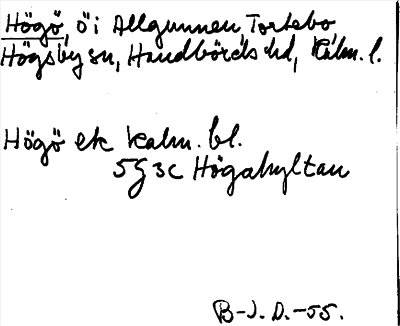 Högö, ö i Allgunnen Tortebo
Högsby sn, Handbörds hd, Kalm. l.
Högö ek Kalm. bl.
5G3c Högahyltan
B-J. D.-55.